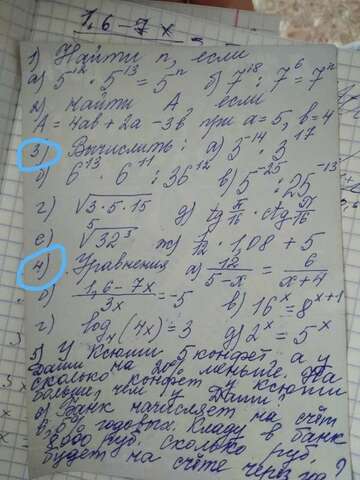 1,6 - 7x
1) Найти n, если
а) 5¹² · 5¹³ = 5ⁿ б) 7¹⁸ : 7⁶ = 7ⁿ
2) Найти A, если
A = 4ab + 2a - 3b при a = 5, b = 4
3) Вычислить: а) 3⁻¹⁴ · 3¹⁷
б) 6¹³ · 6¹¹ : 36¹² в) 5⁻²⁵ : 25⁻¹³
г) √3·5·15 д) tg π/16 · ctg π/16
е) ⁵√32³ ж) 1/12 · 1,08 + 5
4) Уравнения а) 12/(5-x) = 6/(x+4)
б) (1,6-7x)/3x = -5 в) 16ˣ = 8ˣ⁺¹
г) logₓ(4x) = 3 д) 2ˣ = 5ˣ
5) У Ксюши 5 конфет, а у
Даши на 20% меньше. На
сколько конфет у Ксюши
больше, чем у Даши?
6) Банк начисляет на счёт
годовых. Кладу в банк
руб. Сколько руб.
будет на счёте через год?